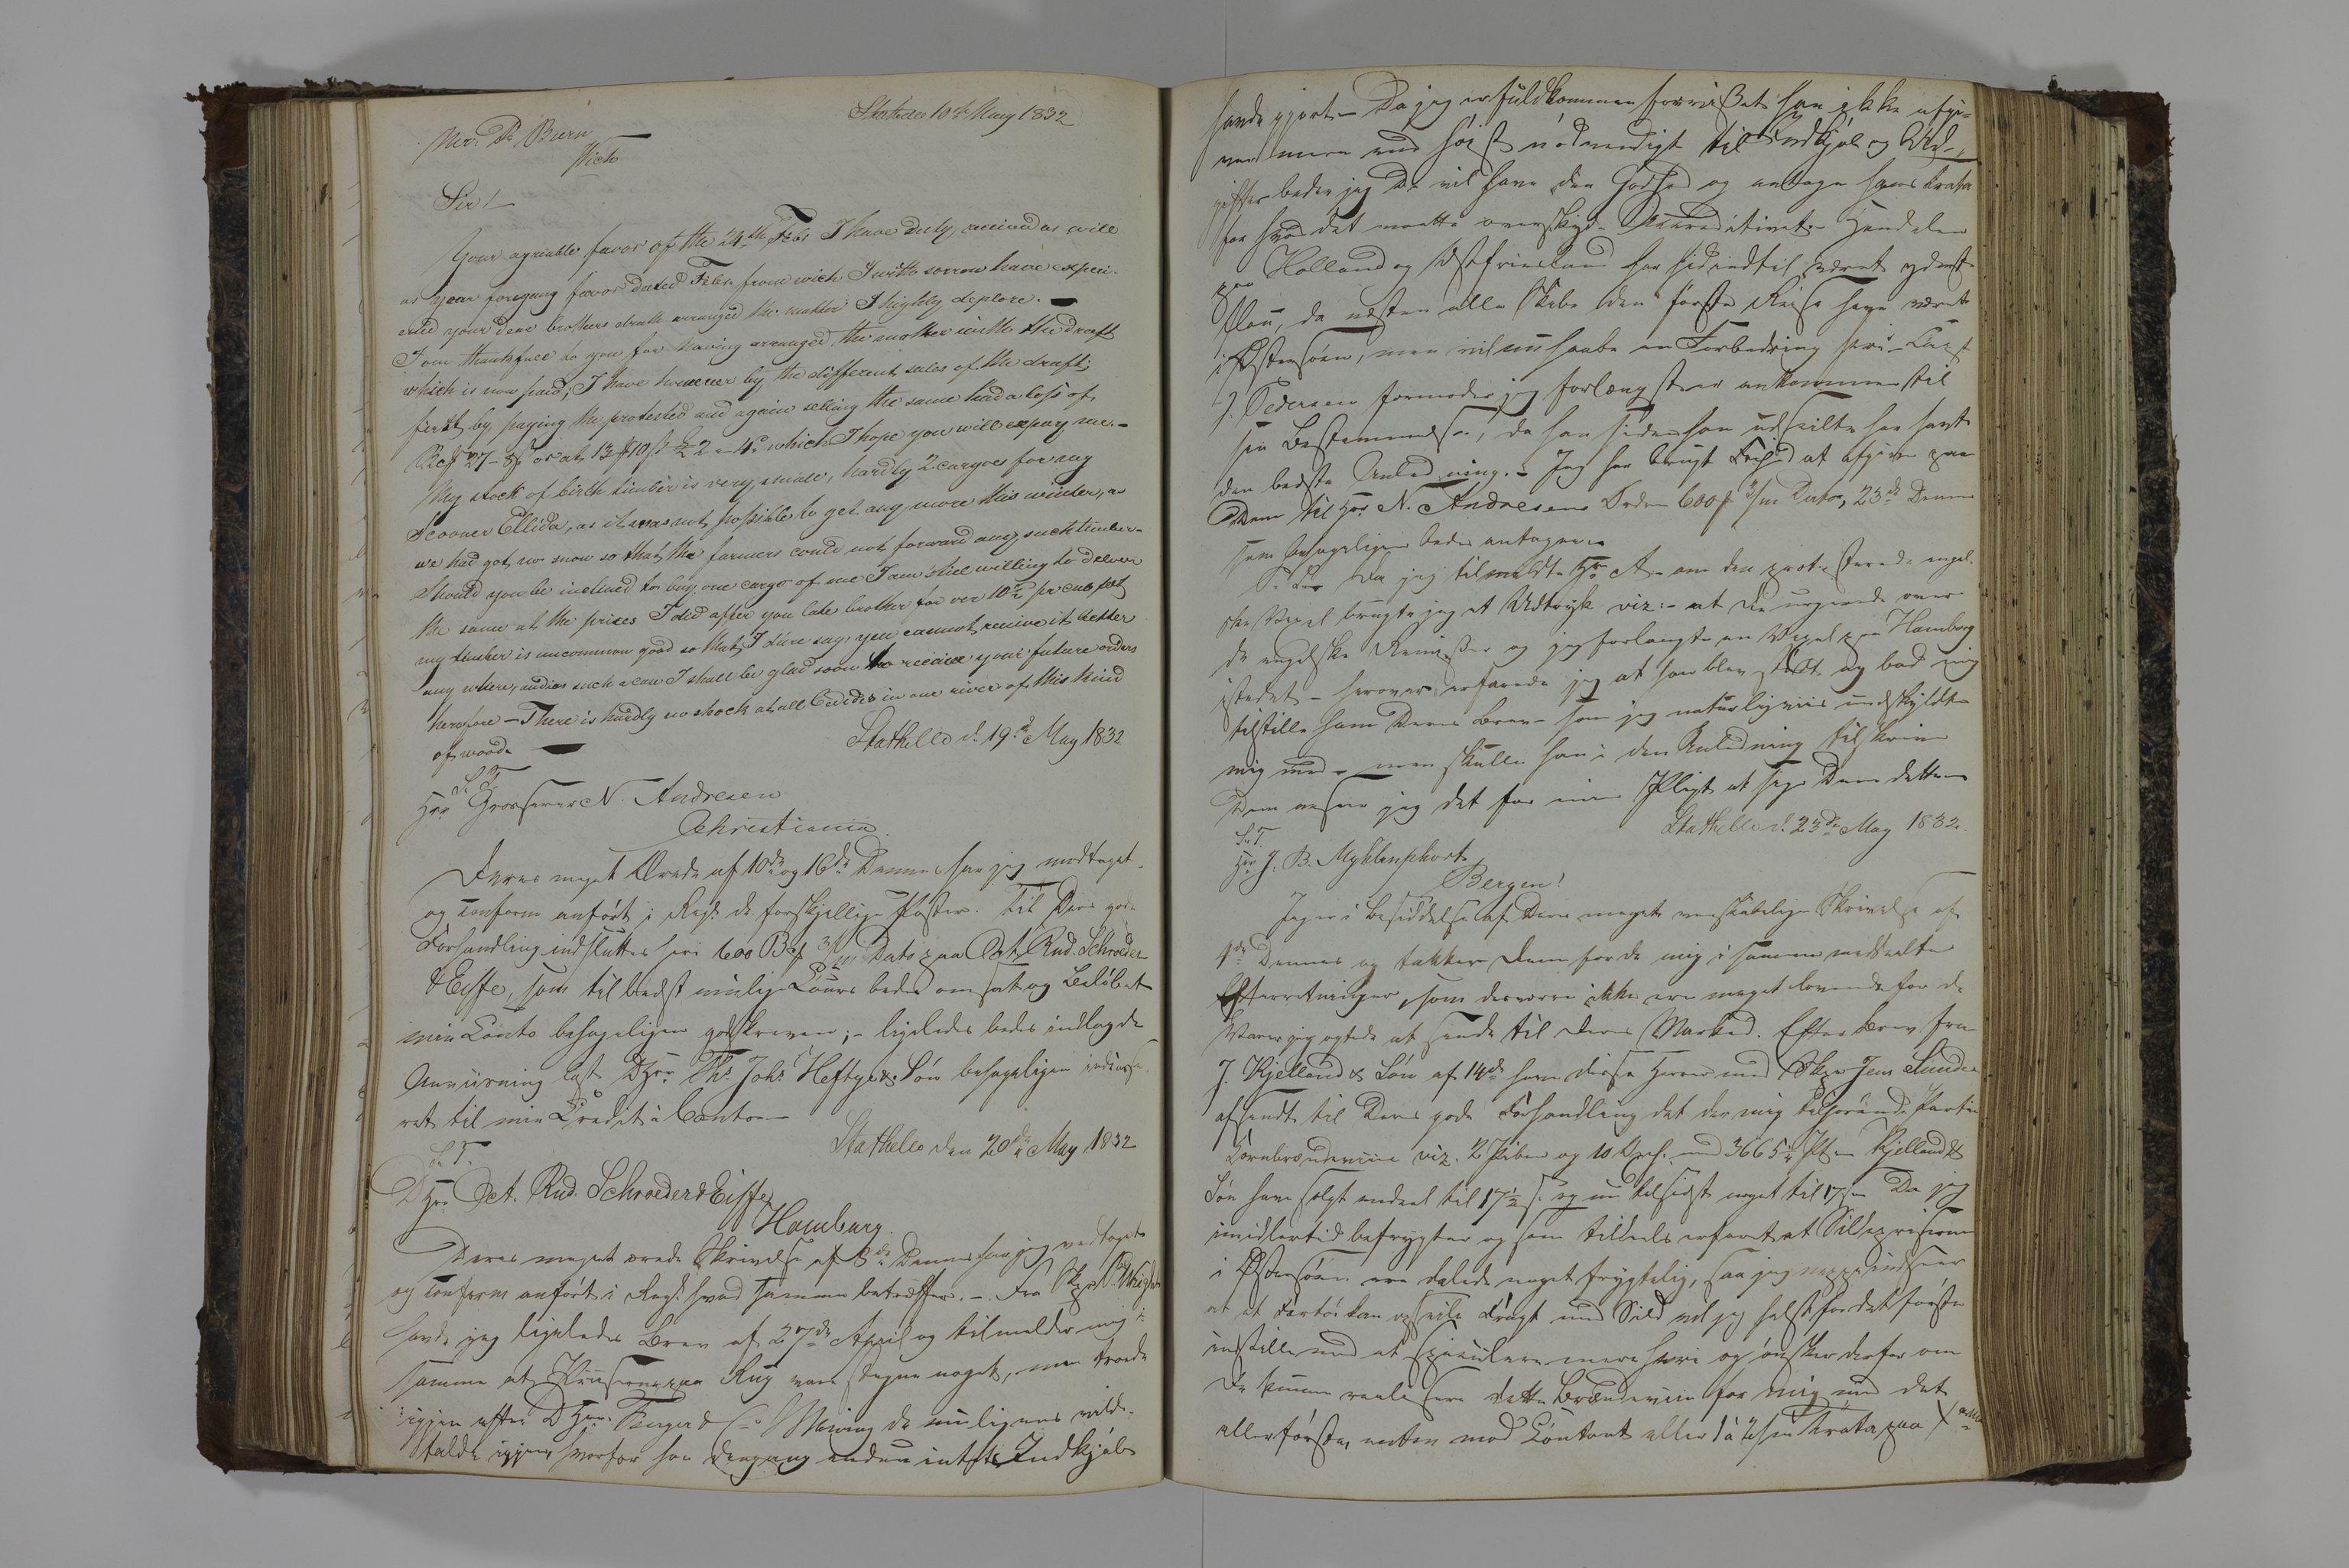 Stathelle 10de May 1832
Mr. P. Burn
Wick
Sir!
Your agriable favor of the 24th Febr I have duly received as will
as your foregoing favor dated Febr. from wich I with sorrow have experi-
enced your dear brothers death arranged the matter I highly deplore. —
I am thankfull to you for having arranged the matter with the draft
which is now paid; I have however by the different sales of the draft;
first by paying the protested and again selling the same had a loss of
27 - 8 ß or at 13 10 2 - 4 which I hope you will repay me. -
My stock of birch timber is very small, hardly 2 cargoes for my
Scooner Ellida, as it was not possible to get any more this winter, as
we had got no snow so that the farmers could not forward any such timber -
Should you be inclined to buy one cargo of me I am still willing to deliver
the same at the prises I did after you late brother for 10 pr cub foot
my timber is uncommon good so that I dare say, you cannot receive it better
any where, and in such a case I shall be glad soon to receive your future orders
herefore — There is hardly no stock at all besides in our river of this kind
of wood. —
Stathelle d. 19de May 1832
S. T.
Hrr Grosserer N. Andresen
Christiania.
Deres meget Ærede af 10de og 16de Dennes har jeg modtaget
og conform anført i Regt. de forskjellige Poster. Til Deres gode
Forhandling indsluttes heri 600 Bcf 3/m Dato paa Oct. Rud. Schroeder
& Eiffe, som til bedst mulige Cours bedes omsat og Beløbet
min Conto behageligen godskreven; - ligeledes bedes indlagde
Anviisning last. DHrr Ths. Johs. Heftye & Søn behageligen indcasse-
ret til min Credit i Conto —
Stathelle den 20de May 1832
S. T.
DHrr Oct. Rud. Schroeder & Eiffe
Hamburg.
Deres meget ærede Skrivelse af 8de Dennes har jeg modtaget
og conform anført i Regt. hvad samme betræffer. - Fra Skpr
havde jeg ligeledes Brev af 27de April og tilmelder mig i
samme at Priserne paa Rug vare stegne noget, men troede
igjen efter DHrr. & Co. Mening de muligens vilde
falde igjen, hvorfor han dengang endnu intet Indkjøb
havde gjort - Da jeg er fuldkommen forvisset han ikke afgi-
ver mere end høist nødvendigt til Indkjøb og Ud-
gifter beder jeg De vil have den Godhed og antage hans Trata
for hvad det maatte overskyde Accreditivet. - Handelen
paa Holland og Ostfriesland har hidindtil været yderst
flau, da næsten alle Skibe den første Reise have været
i Østersøen, men vil nu haabe en Forbedring heri - Capt
J. Pedersen formoder jeg forlængst er ankommen til
sin Bestemmelse, da han siden han udseilte har havt
den bedste Anledning. - Jeg har brugt Frihed at afgive paa
Dem til Hrr N. Andresens Ordre 600 3/m Dato, 23de Dennes
som behageligen bedes antagen. -
Da jeg tilmeldte Hrr A. om den protesterede engel-
ske Vexel brugte jeg et Udtryk viz: - at De
de engelske Remisser og jeg forlangte en Vexel paa Hamborg
istedet - herover erfarede jeg at han blev stødt og bad mig
tilstille ham Deres Brev - som jeg naturligviis undskyldte
mig med - men skulle han i den Anledning tilskrive
Dem anseer jeg det for min Pligt at sige Dem dette —
Stathelle d. 23de May 1832.
S. T.
Hrr J. B. Myhlenphort
Bergen!
Jeg er i Besiddelse af Deres meget venskabelige Skrivelse af
1de Dennes og takker Dem for de mig i samme meddeelte
Efterretninger, som desværre ikke ere meget lovende for de
Varer jeg agtede at sende til Deres Marked. Efter Brev fra
J. Kjelland & Søn af 14de have disse Herrer med Skpr Jens Sunde
afsendt til Deres gode Forhandling det der mig tilhørende Partie
Kornbrændeviin viz. 2 Piber og 10 med 3665 Pt - Kjelland &
Søn have solgt endeel til 17½ ß. og nu tilsidst noget til 17 - Da jeg
imidlertid befrygter og som tildeels erfaret at Sildepriserne
i Østersøen ere dalede noget frygtelig, saa jeg neppe indseer
at et Fartøi kan opseile Fragt med Sild vil jeg helst for det første
indstille med at speculere mere heri og ønsker derfor om
De kunne realisere dette Brændeviin for mig med det
allerførste, enten mod Contant eller 1 à 2/m Trata paa